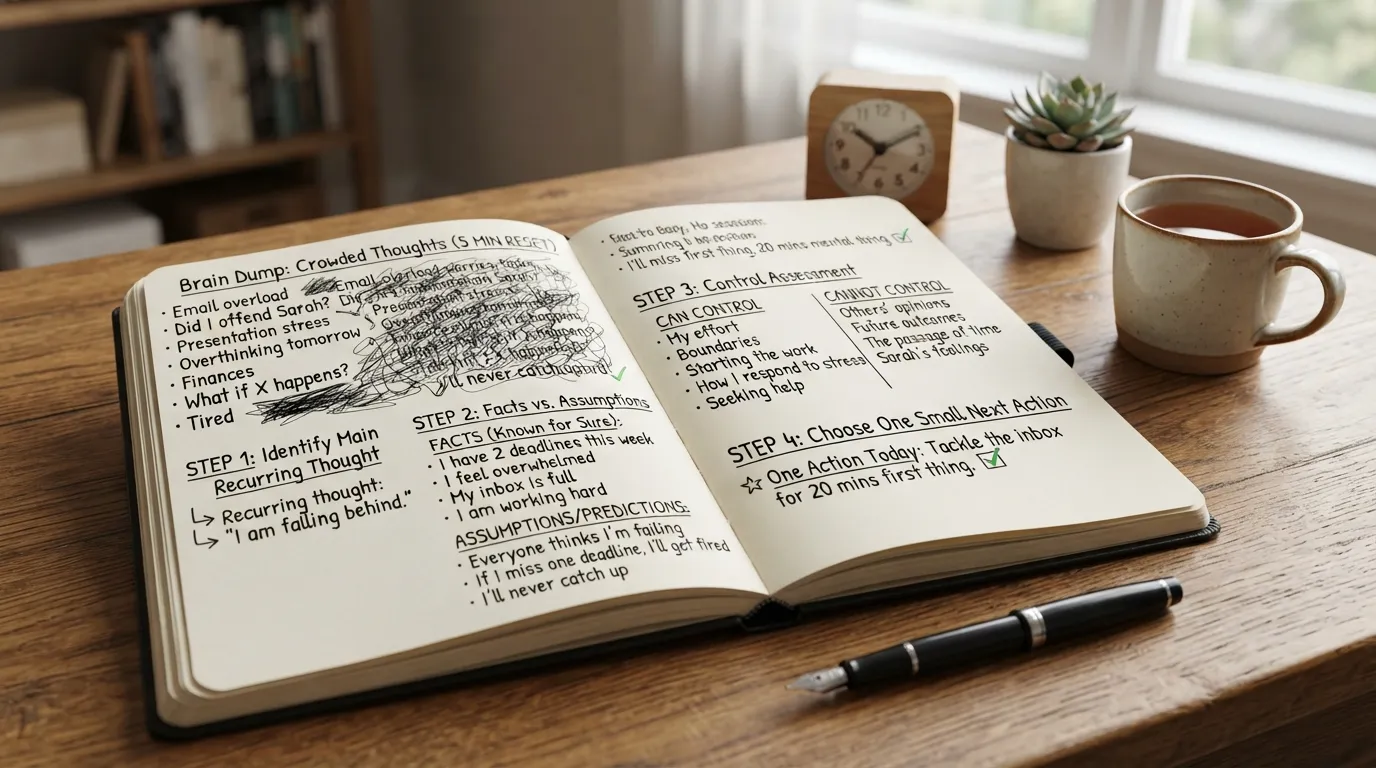 Brain Dump: Crowded Thoughts (5 MIN RESET)
• Email overload
• Did I offend Sarah?
• Presentation stress
• Overthinking tomorrow
• Finances
• What if X happens?
• Tired
Email overload
I'll never catch
STEP 1: Identify Main
Recurring Thought
↳ Recurring thought:
↳ "I am falling behind."
STEP 2: Facts vs. Assumptions
FACTS (Known for Sure):
• I have 2 deadlines this week
• I feel overwhelmed
• My inbox is full
• I am working hard
ASSUMPTIONS/PREDICTIONS:
• Everyone thinks I'm failing
• If I miss one deadline, I'll get fired
• I'll never catch up
• I'll miss first thing, 20 mins mental thing ☑
STEP 3: Control Assessment
CAN CONTROL
• My effort
• Boundaries
• Starting the work
• How I respond to stress
• Seeking help
CANNOT CONTROL
Others' opinions
Future outcomes
The passage of time
Sarah's
STEP 4: Choose One Small Next Action
☆ One Action Today: Tackle the inbox
for 20 mins first thing. ☑